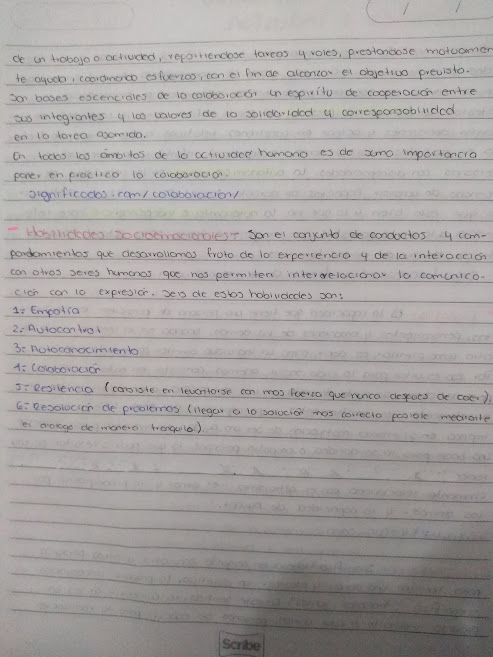 de un trabajo o actividad, repartiendose tareas y roles, prestandose mutuamen
te ayuda, coordinando esfuerzos, con el fin de alcanzar el objetivo previsto.
Son bases escenciales de la colaboración un espíritu de cooperación entre
sus integrantes y los valores de la solidaridad y corresponsabilidad
en la tarea asumida.
En todos los ámbitos de la actividad humana es de suma importancia
poner en práctica la colaboración.
significados.com/colaboración/
- Habilidades Socioemocionales- Son el conjunto de conductas y com-
pordamientos que desarrollamos fruto de la experiencia y de la interacción
con otros seres humanos que nos permiten interrelacionar la comunica-
ción con la expresión. Seis de estas habilidades son:
1= Empatía
2= Autocontrol
3= Autoconocimiento
4= Colaboración
5= Resilencia (consiste en levantarse con mas fuerza que nunca después de caer).
6= Resolución de problemas (llegar a la solución mas correcta posible mediante
el dialogo de manera tranquila).
Scribe